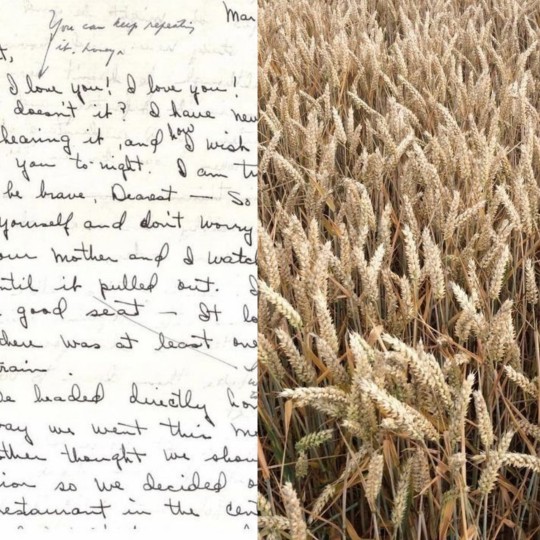 You can keep repeating
it, honey.
Mar
t,
I love you! I love you!
doesn't it? I have nev
hearing it, and how I wish
you to-night. I am tr
be brave, Dearest — So
yourself and don't worry
our mother and I watc
ntil it pulled out. I
good seat — It lo
there was at least one
train.
e headed directly for
ay we went this
ther thought we shou
ion so we decided o
restaurant in the cen